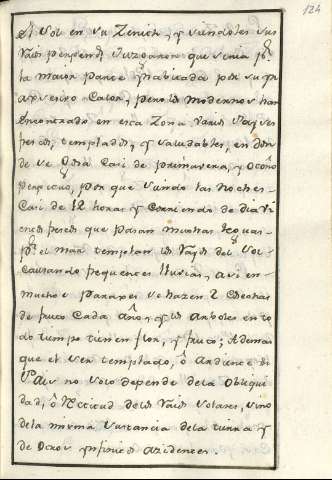 124
el Sol en su Zenich, y siendoles sus
Raios perpend.s Juzgaron que venia p.r
la maior parte ynabitada por su gr.
exsesivo Calor, pero los modernos han
encontrado en esta Zona varios Payses
frescos, templados, y saludables, en don
de se Goza casi de primavera, y Otoño
perpetuo, por que siendo las Noches
Casi de 12 horas y Corriendo de dia Vi
entos frescos que pasan muchas leguas
p.r el mar templan los Rayos del Sol
Causando frequentes lluvias, asi en
muchos Parages se hazen 2 Cosechas
de fruto Cada año, y los Arboles en to
do tiempo tienen flor, y fruto; Ademas
que el ser templado, ô Ardiente el
Pais no solo depende dela Obliqui
dad, ô Rectitud delos Raios Solares, sino
dela misma sustancia dela tierra y
de Otros ynfinitos accidentes.